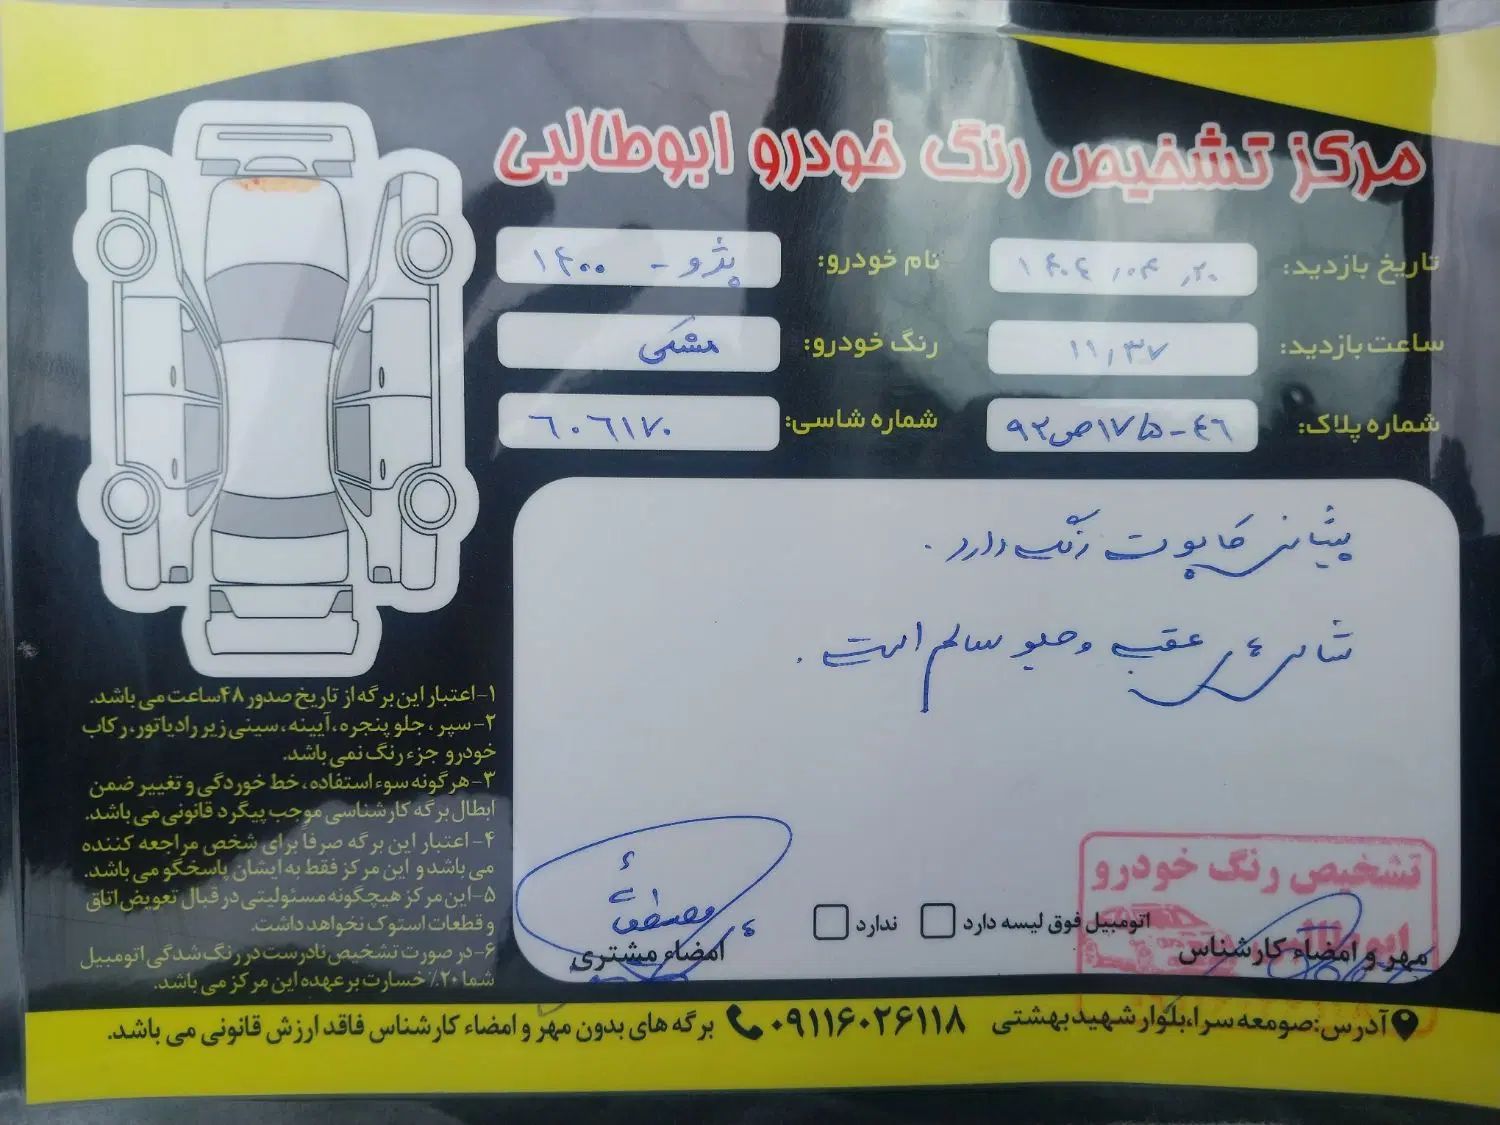 مرکز تشخیص رنگ خودرو ابوطالبی
تاریخ بازدید: ۱۴۰۴،۰۴،۲۰
نام خودرو: پژو - ۱۴۰۰
ساعت بازدید: ۱۱،۳۷
رنگ خودرو: مشکی
شماره پلاک: ۴۶-۱۷۵ص۹۲
شماره شاسی: ۶۰۶۱۷۰
پیشانی کاپوت رنگ دارد.
شاسی عقب و جلو سالم است.
۱-اعتبار این برگه از تاریخ صدور ۴۸ساعت می باشد.
۲-سپر، جلو پنجره، آیینه، سینی زیر رادیاتور، رکاب
خودرو جزء رنگ نمی باشد.
۳-هرگونه سوء استفاده، خط خوردگی و تغییر ضمن
ابطال برگه کارشناسی موجب پیگرد قانونی می باشد.
۴- اعتبار این برگه صرفاً برای شخص مراجعه کننده
می باشد و این مرکز فقط به ایشان پاسخگو می باشد.
۵-این مرکز هیچگونه مسئولیتی در قبال تعویض اتاق
و قطعات استوک نخواهد داشت.
۶-در صورت تشخیص نادرست در رنگ شدگی اتومبیل
شما ۲۰٪ خسارت بر عهده این مرکز می باشد.
تشخیص رنگ خودرو
اتومبیل فوق لیسه دارد ندارد
مهر و امضاء کارشناس
امضاء مشتری
آدرس: صومعه سرا، بلوار شهید بهشتی ۰۹۱۱۶۰۲۶۱۱۸ برگه های بدون مهر و امضاء کارشناس فاقد ارزش قانونی می باشد.